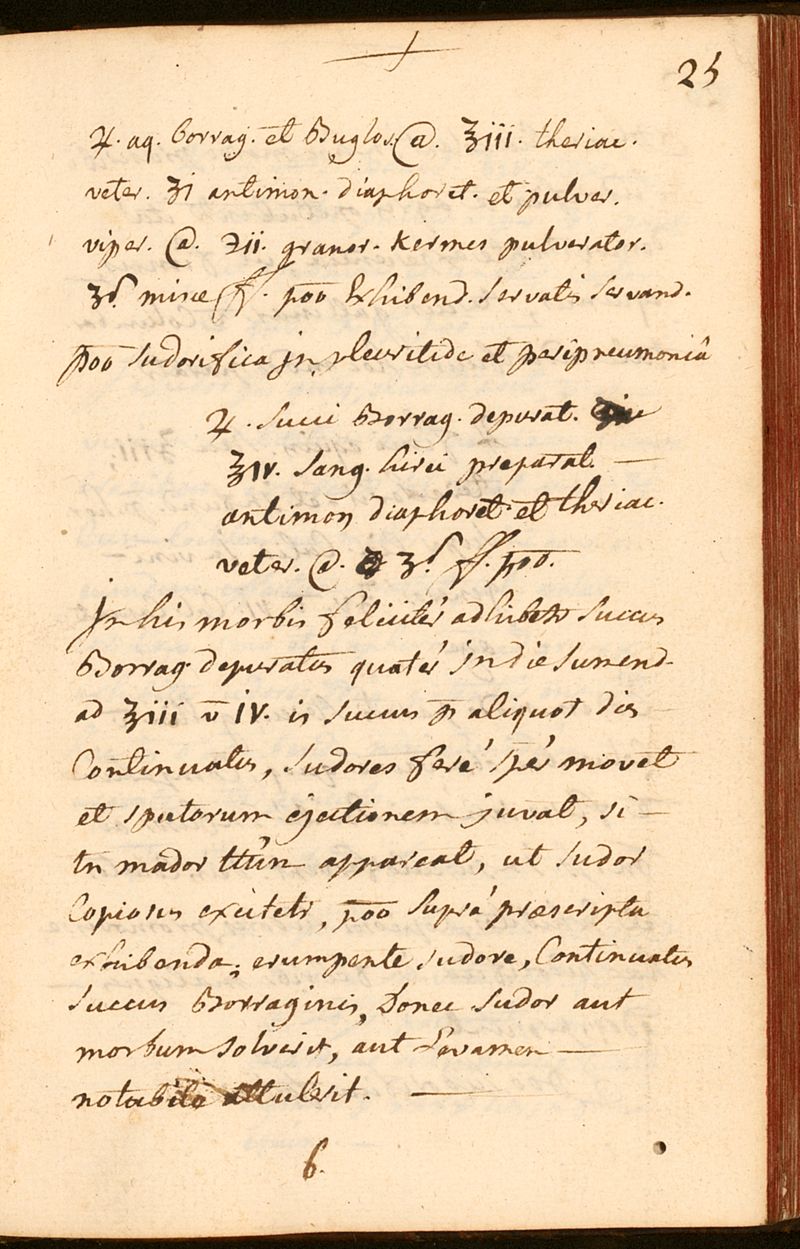 25
♃. aq. borrag. et Buglos. @. ℥iii. theriac.
veter. ʒi antimon. diaphoret. et pulver.
viper. @. ℈ii. granor. Kermes pulverator.
ʒß. misce f. poo Exhibend. servatis servand.
poo sudorifica jn pleuritide et peripneumoniâ
♃. Succi Borrag. depurat.
℥iv. Sang. hirci preparat. —
antimon diaphoret. et theriac.
veter. @. ʒß f. poo.
Jn his morbis feliciter adhibetr Succus
Borrag. depuratus quater in die Sumend.
ad ℥iii v̄ iv. is Succus p aliquot dies
Continuatus, Sudores ferè spèr movet
et sputorum ejectionem juvat, si —
tn mador ttùm appareat, ut Sudor
Copiosus excitetr, poo Suprà præscripta
exhibenda; erumpente sudore, Continuatus
Succus Borraginis, Donec Sudor aut
morbum solverit, aut Levamen —
notabile attulerit. —
6.